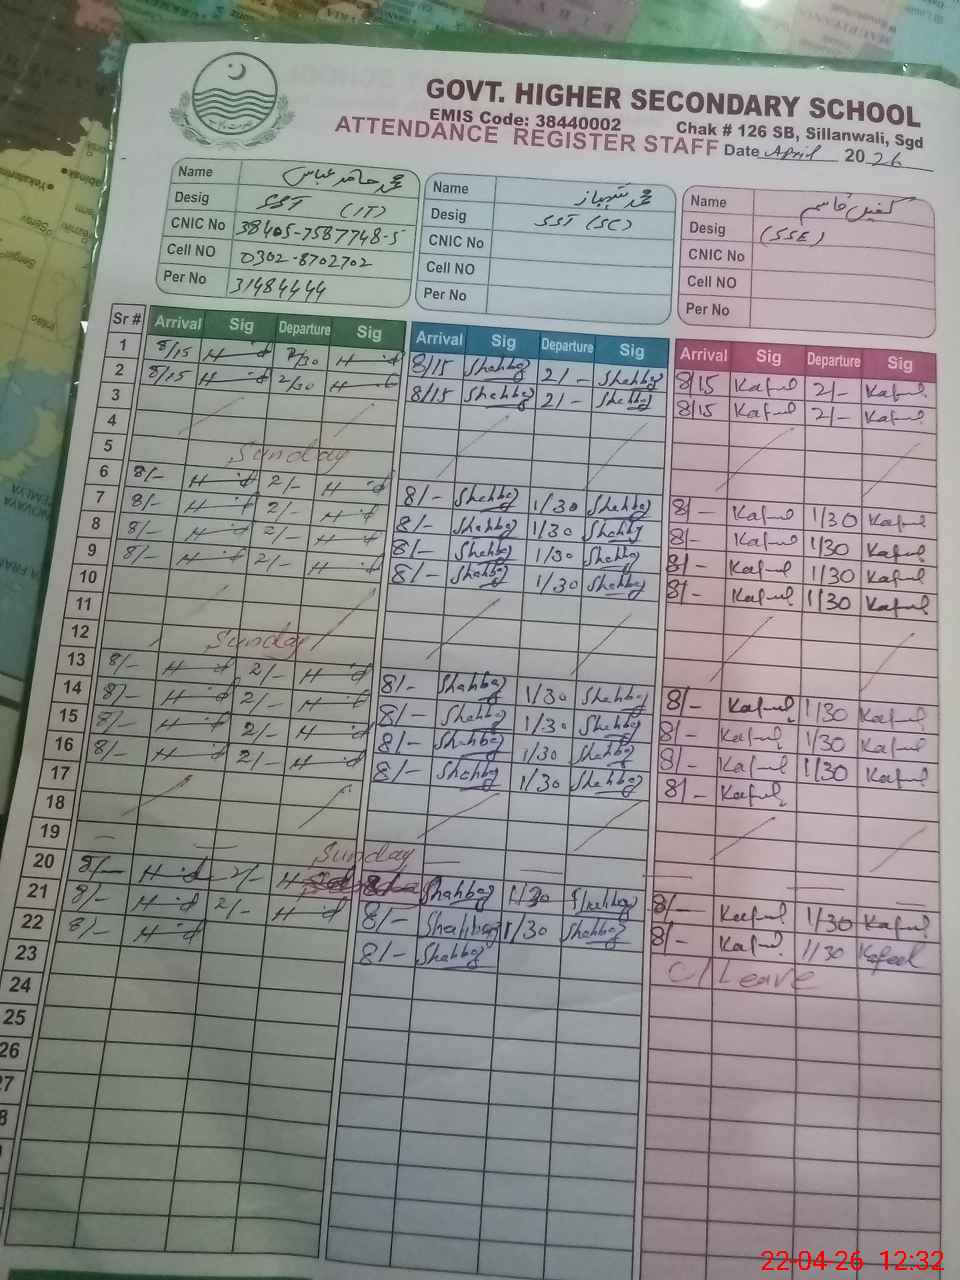 GOVT. HIGHER SECONDARY SCHOOL
EMIS Code: 38440002 Chak # 126 SB, Sillanwali, Sgd
ATTENDANCE REGISTER STAFF Date April 2026
Name محمد حامد عباس
Desig SST (IT)
CNIC No 38405-7587748-5
Cell NO 0302-8702702
Per No 31484444
Name محمد شہباز
Desig SST (SC)
CNIC No
Cell NO
Per No
Name کفیل قاسم
Desig (SSE)
CNIC No
Cell NO
Per No
Sr # Arrival Sig Departure Sig Arrival Sig Departure Sig Arrival Sig Departure Sig
1 8/15 2/30 8/15 Shahbaz 2/- Shahbaz 8/15 Kafeel 2/- Kafeel
2 8/15 2/30 8/15 Shahbaz 2/- Shahbaz 8/15 Kafeel 2/- Kafeel
3
4
5 Sunday
6 8/- 2/- 8/- Shahbaz 1/30 Shahbaz 8/- Kafeel 1/30 Kafeel
7 8/- 2/- 8/- Shahbaz 1/30 Shahbaz 8/- Kafeel 1/30 Kafeel
8 8/- 2/- 8/- Shahbaz 1/30 Shahbaz 8/- Kafeel 1/30 Kafeel
9 8/- 2/- 8/- Shahbaz 1/30 Shahbaz 8/- Kafeel 1/30 Kafeel
10
11
12 Sunday
13 8/- 2/- 8/- Shahbaz 1/30 Shahbaz 8/- Kafeel 1/30 Kafeel
14 8/- 2/- 8/- Shahbaz 1/30 Shahbaz 8/- Kafeel 1/30 Kafeel
15 8/- 2/- 8/- Shahbaz 1/30 Shahbaz 8/- Kafeel 1/30 Kafeel
16 8/- 2/- 8/- Shahbaz 1/30 Shahbaz 8/- Kafeel
17
18
19 Sunday
20 8/- 2/- 8/- Shahbaz 1/30 Shahbaz 8/- Kafeel 1/30 Kafeel
21 8/- 2/- 8/- Shahbaz 1/30 Shahbaz 8/- Kafeel 1/30 Kafeel
22 8/- 8/- Shahbaz C/Leave
23
24
25
26
27
8
22-04-26 12:32